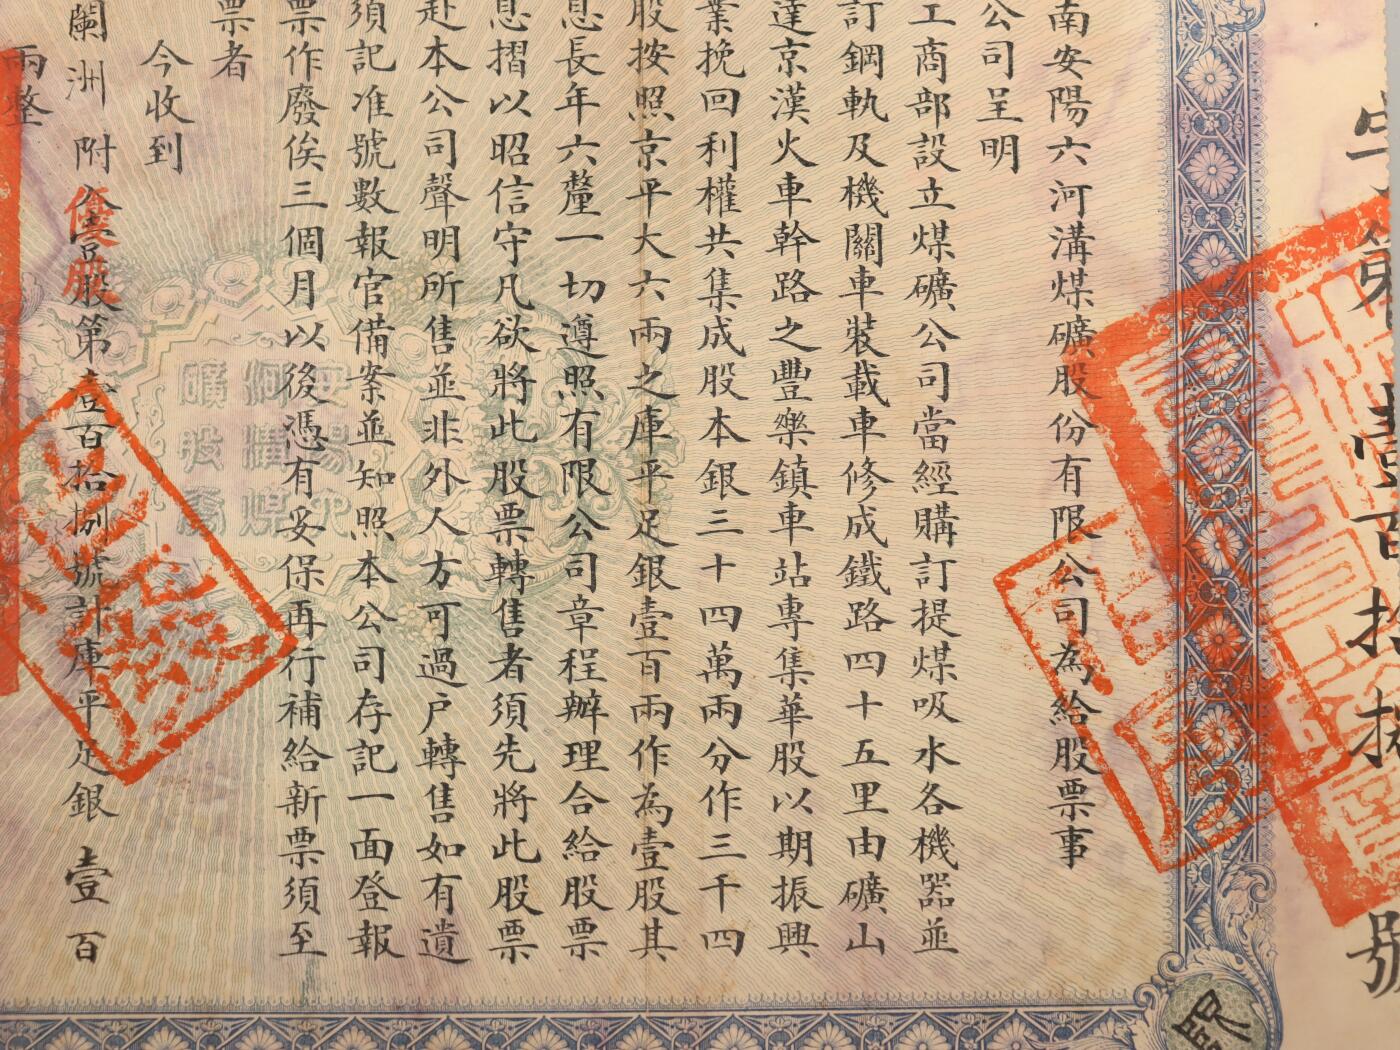 南安陽六河溝煤礦股份有限公司為給股票事
公司呈明
工商部設立煤礦公司當經購訂提煤吸水各機器並
訂鋼軌及機關車裝載車修成鐵路四十五里由礦山
達京漢火車幹路之豐樂鎮車站專集華股以期振興
業挽回利權共集成股本銀三十四萬兩分作三千四
股按照京平大六兩之庫平足銀壹百兩作為壹股其
息長年六釐一切遵照有限公司章程辦理合給股票
息摺以昭信守凡欲將此股票轉售者須先將此股票
赴本公司聲明所售並非外人方可過戶轉售如有遺
須記准號數報官備案並知照本公司存記一面登報
票作廢俟三個月以後憑有妥保再行補給新票須至
票者
今收到
闌洲附入 股第壹百拾捌號計庫平足銀壹百
兩整
優股